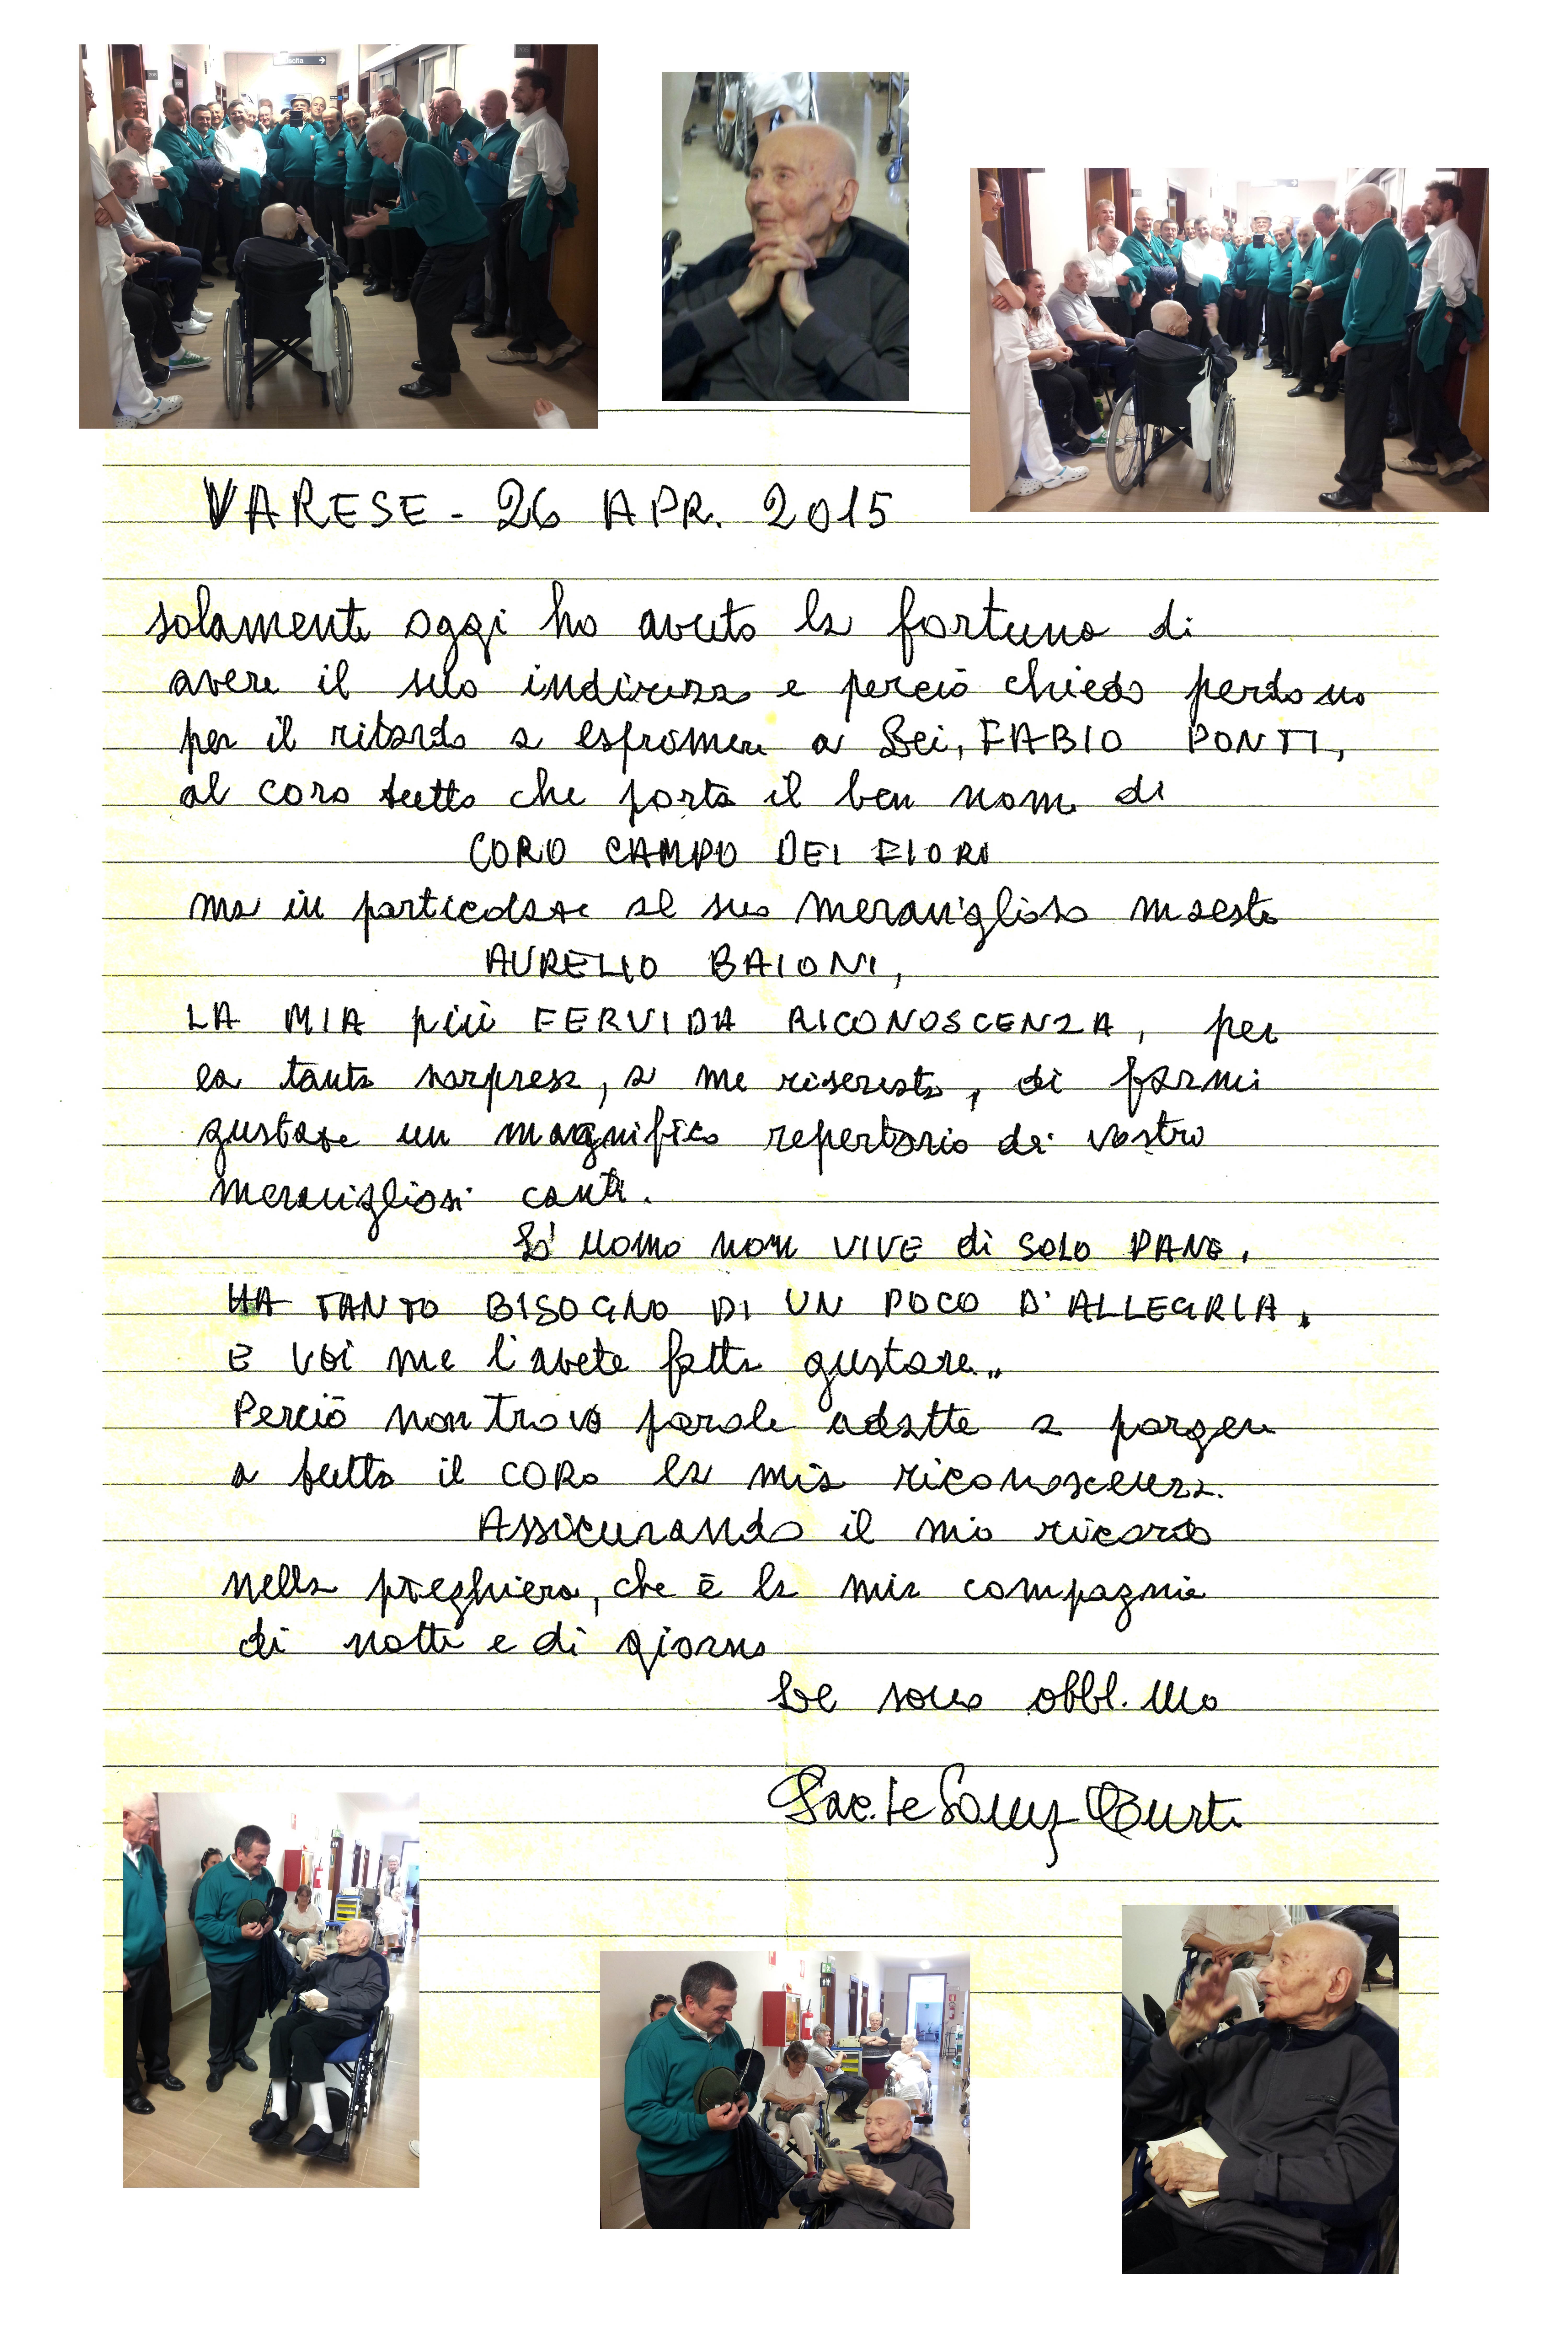 uscita →
VARESE - 26 APR. 2015
solamente oggi ho avuto la fortuna di
avere il suo indirizzo e perciò chiedo perdono
per il ritardo a esprimere a Lei, FABIO PONTI,
al coro tutto che porta il ben nome di
CORO CAMPO DEI FIORI
ma in particolare al suo meraviglioso maestro
AURELIO BAIONI,
LA MIA più FERVIDA RICONOSCENZA, per
la tanta sorpresa, a me riservata, di farmi
gustare un magnifico repertorio di vostro
meravigliosi canti.
Lo' uomo non VIVE di SOLO PANE,
HA TANTO BISOGNO DI UN POCO D'ALLEGRIA.
E voi me l'avete fatta gustare..
Perciò non trovo parole adatte a porgere
a tutto il CORO la mia riconoscenza.
Assicurando il mio ricordo
nella preghiera, che è la mia compagnia
di notte e di giorno
Le sono obbl.mo
Sac.te Curti